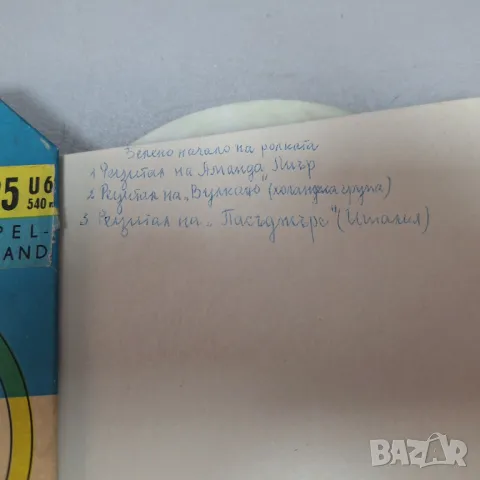 Зелено начало на ролката
1 Рецитал на Аманда Лиър
2 Рецитал на „Вулкано" (холандска група)
3 Рецитал на „Пасъджърс" (Италия)
25 U6
540 m
PEL-
AND
BAZAR.bg